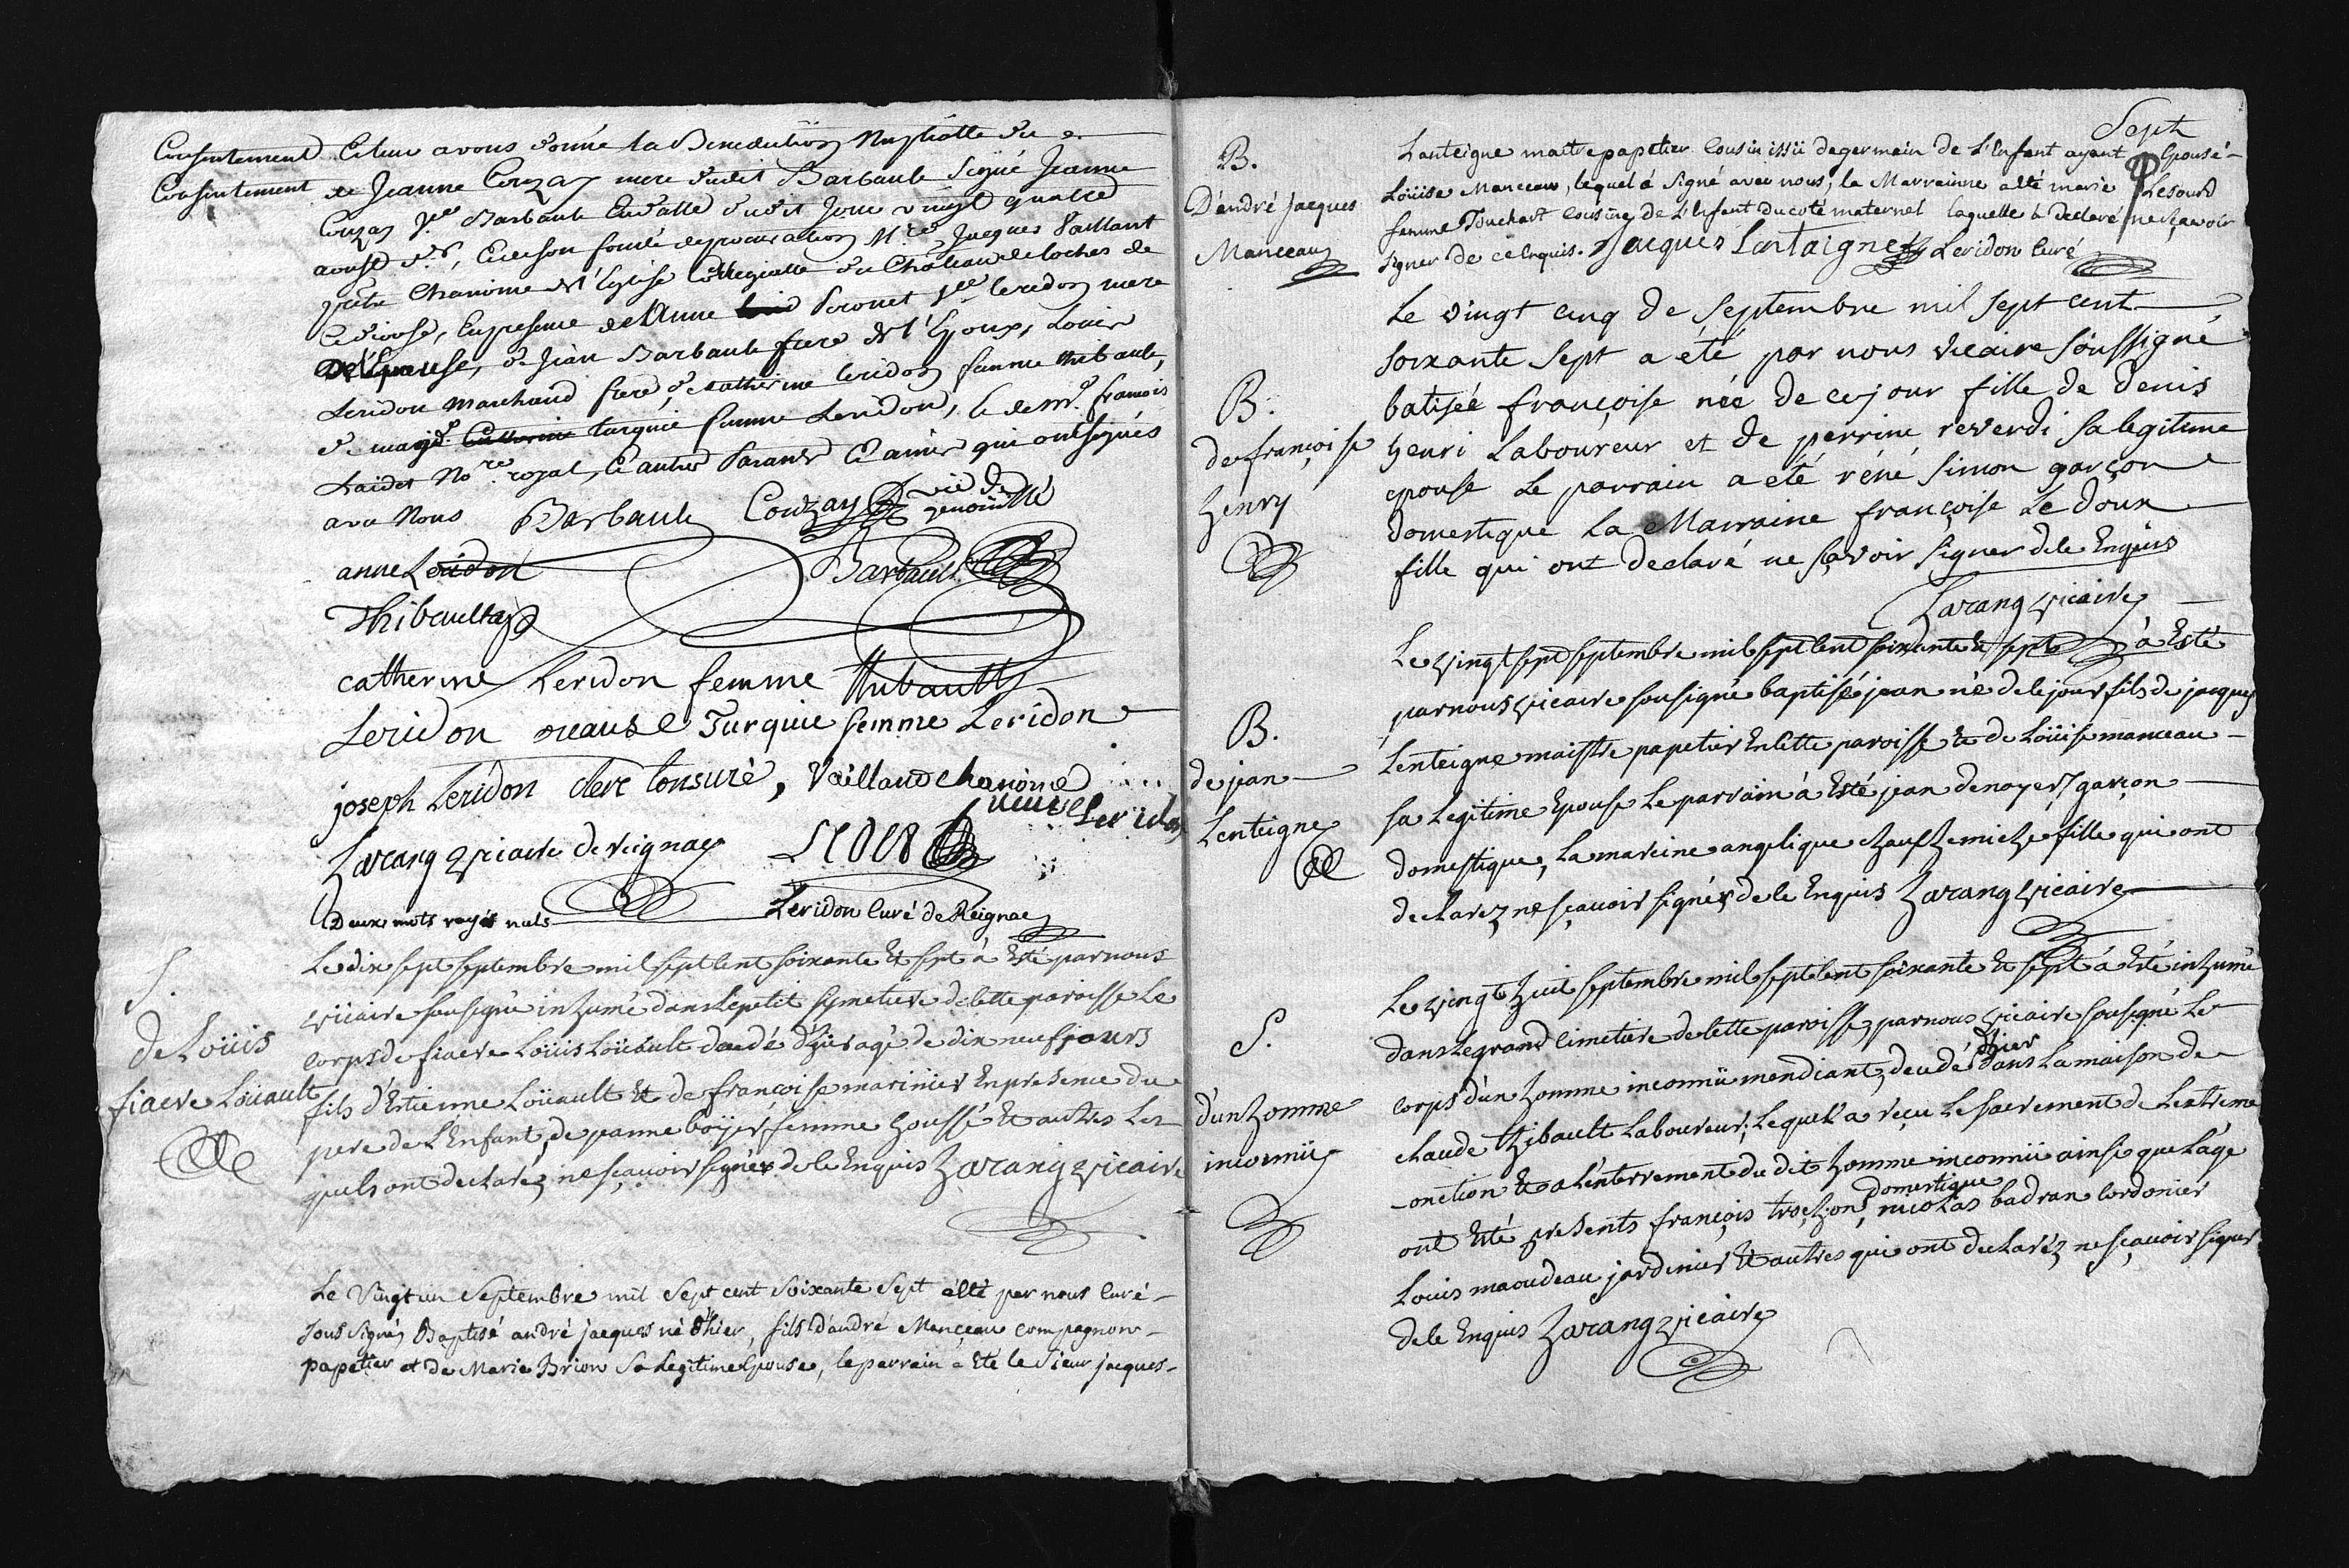 Consentement Et leur avons donné la Benediction Nuptialle du
Consentement de Jeanne Couzay mere dudit Barbault Signé Jeanne
Couzay Vve Barbault En datte dudit Jour vingt quatre
aoust dr, Et de son fondé de procuration Mre Jacques Vaillant
pretre Chanoine de l'Eglise Collegialle du Château de loches de
Ce diocese, En presence de Anne Peronet Vve leridon mere
De l'Epouse, de Jean Barbault frere de l'Epoux, Louis
Leridon marchand frere, de Catherine leridon femme thibault,
de marie Catherine turquie femme Leridon, et de Mr. francois
Haidet Nore. royal, Et autres Parans Et amis qui ont signés
avec Nous Barbault Couzay vic de
genouillé
anne Leridon Barbault
Thibault
catherine Leridon femme thibault
Leridon marise Turquie femme Leridon
joseph Leridon clerc tonsuré, Vailland chanoine
veuve Leridon
Harang vicaire de reignac
Deux mots rayés nuls Leridon Curé de Reignac
S.
de Loüis
fiacre Loüault
Le dix sept septembre mil sept cent soixante Et sept à Esté par nous
vicaire sousigné inhumé dans le petit symetiere de cette paroisse Le
corps de fiacre Loüis Loüault decedé d'hier agé de dix neuf jours
fils d'Estienne Loüault Et de françoise marinier En presence du
pere de L'Enfant, de janne boÿer femme houssé Et autres Les
quels ont declarez ne sçauoir signer de ce Enquis Harang vicaire
Le Vingt un Septembre mil Sept cent Soixante Sept a été par nous Curé
Sous Signé, Baptisé andré jacques né d'hier, fils d'andré Manceau compagnon
papetier et de Marie Brion Sa Legitime Epouse, le parrain a Eté le Sieur jacques
Sept
B.
D'andré Jacques
Manceau
Lanteigne maitre papetier Cousin issü de germain de L'Enfant ayant Epousé
Loüise Manceau, lequel à Signé avec nous, la Marrainne a été marie Lesourd
femme Touchart Cousine de L'Enfant du coté maternel laquelle à declaré ne sçavoir
signer de ce Enquis. Jacques Lantaigne Leridon Curé
B.
de françoise
henry
Le vingt cinq de septembre mil sept cent
soixante sept a été par nous vicaire soussigné
batiséé françoise néé de ce jour fille de Denis
henri Laboureur et de perrine reverdi sa legitime
epouse Le parrain a eté réné simon garçon
domestique La Marraine françoise Le Doux
fille qui ont declaré ne sçavoir signer de ce Enquis
Harang vicaire
B.
de jean
Lenteigne
Le vingt sept septembre mil sept cent soixante Et sept à Esté
par nous vicaire sousigné baptisé jean né de ce jour fils de jacques
Lenteigne maistre papetier En cette paroisse Et de Loüise manceau
sa Legitime Epouse Le parrain à Esté jean denoyers garçon
domestique, La mareine angelique fille qui ont
declarez ne sçauoir signer de ce Enquis Harang vicaire
S.
d'un homme
inconnü
Le vingt huit septembre mil sept cent soixante Et sept à Esté inhumé
dans Le grand cimetiere de cette paroisse, par nous vicaire sousigné Le
corps d'un homme inconnü mendiant, decedé d'hier dans La maison de
claude thibault Laboureur, Lequel a reçu Le sacrement de Lextreme
onction Et a L'enterrement du dit homme inconnü ainsi que L'age
ont Esté presents françois trochon domestique, nicolas badran cordonier
Louis maoudeau jardinier Et autres qui ont declaréz ne sçauoir signer
de ce Enquis Harang vicaire